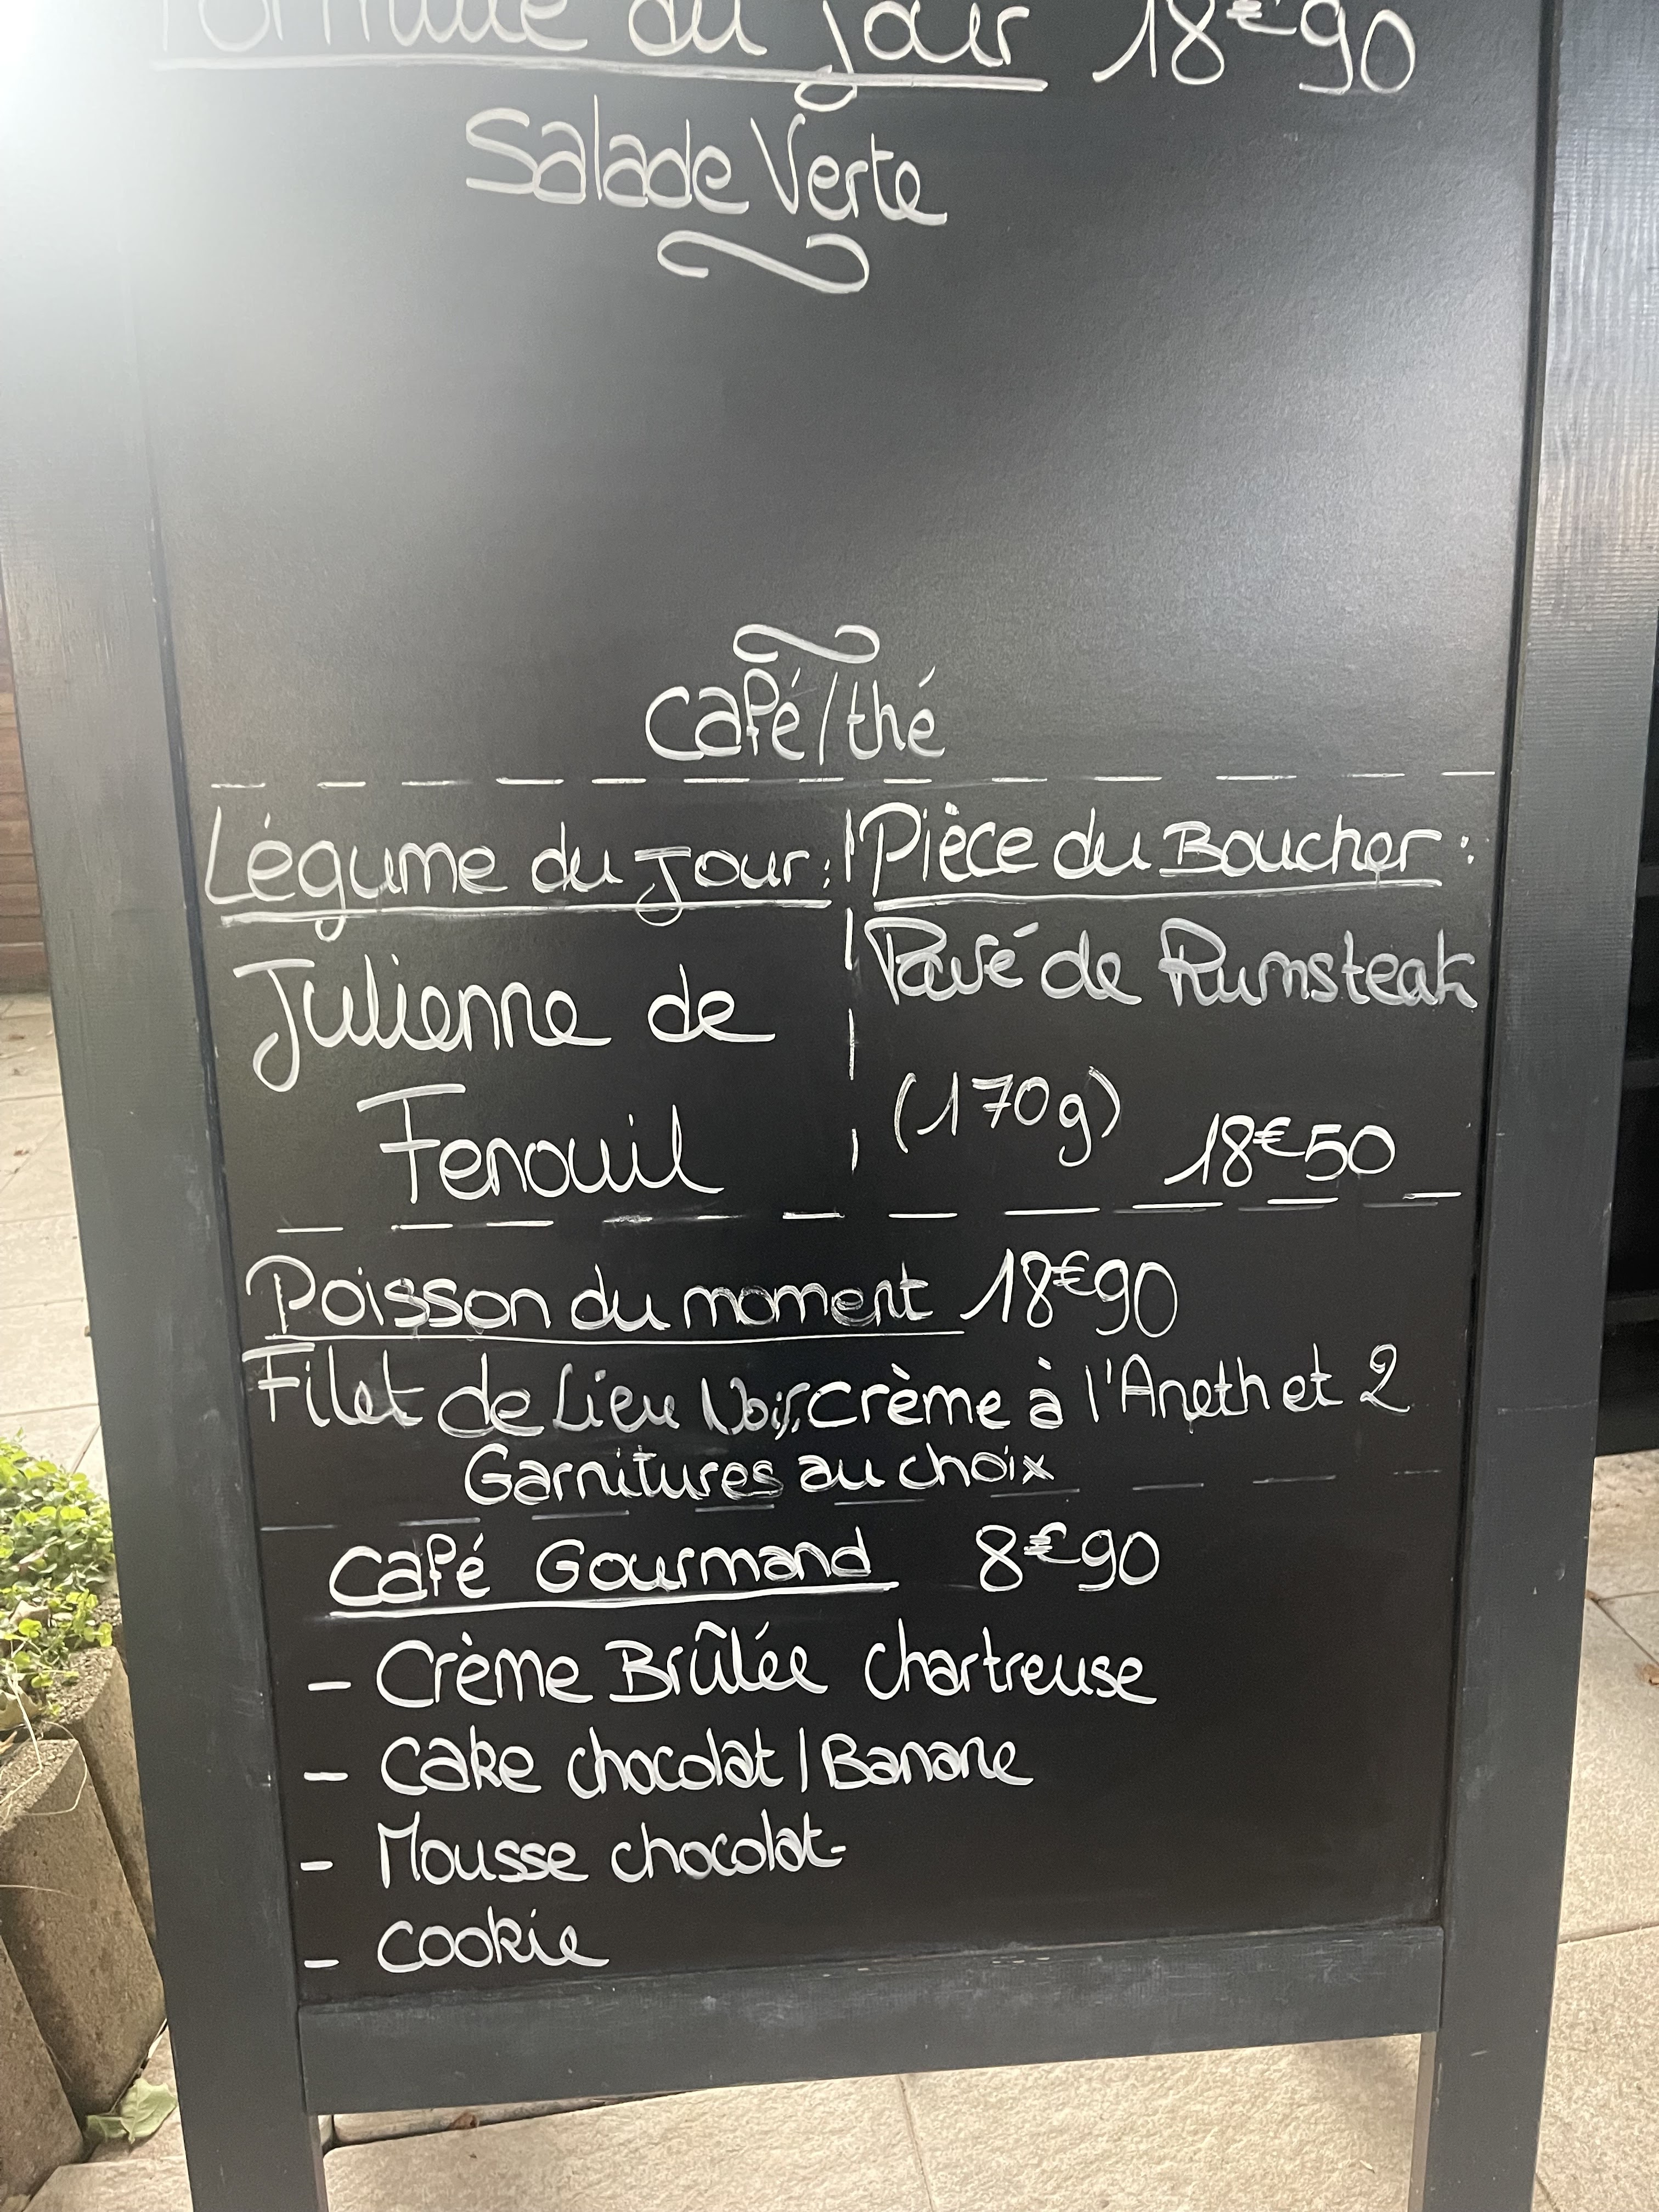 Formule du jour 18€90
Salade Verte
café/thé
Légume du Jour:
Julienne de
Fenouil
Pièce du Boucher :
Pavé de Rumsteak
(170g) 18€50
Poisson du moment 18€90
Filet de Lieu Noir, crème à l'Aneth et 2
Garnitures au choix
Café Gourmand 8€90
- Crème Brûlée chartreuse
- Cake chocolat / Banane
- Mousse chocolat
- cookie